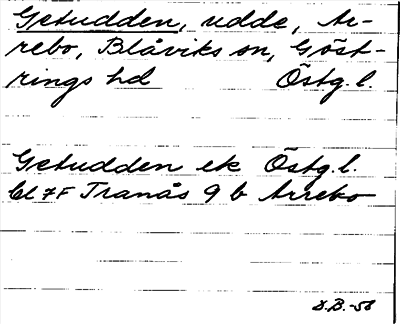 Getudden, udde, Ar-
rebo, Blåviks sn, Göst-
rings hd Östg. l.
Getudden ek Östg. l.
Bl 7F Tranås 9 b Arrebo
S.B.-56